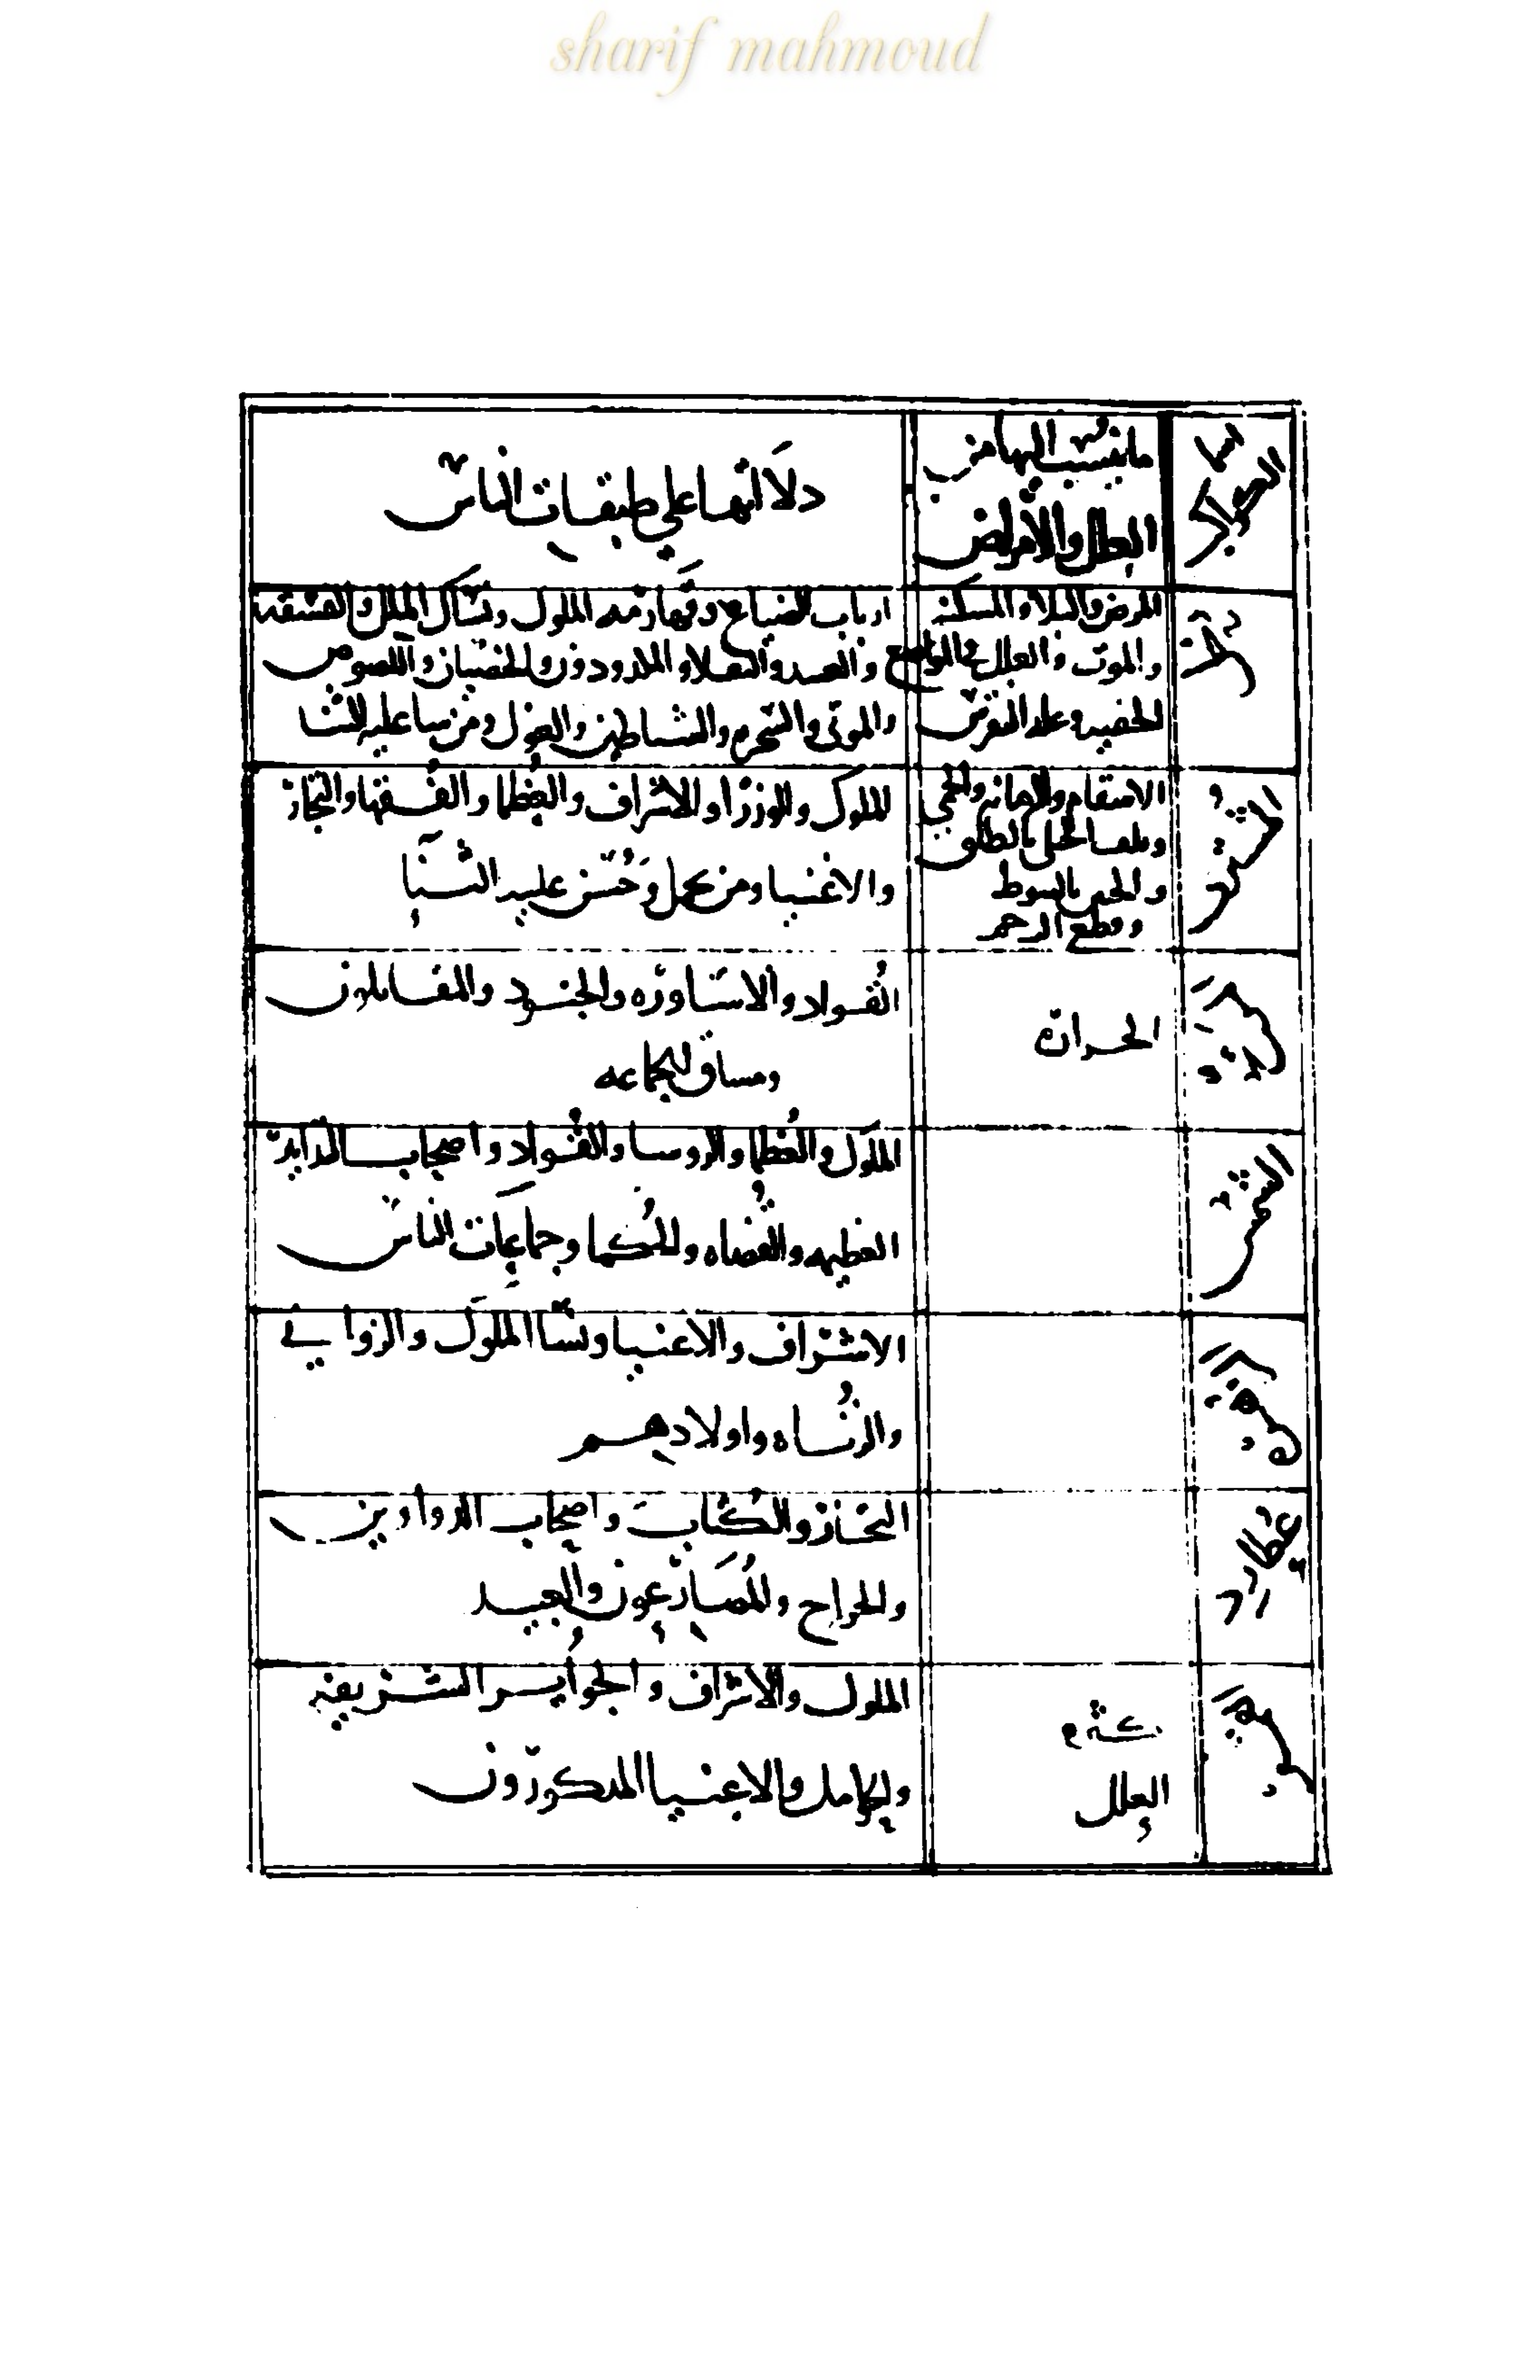 sharif mahmoud
اسما الكواكب
ما ينسب اليها من
العلل والامراض
دلالاتها على طبقات الناس
زحل
المرض والبلا والمسكنه
والموت والعلل في المواضع
الخفيه وعله النقرس
ارباب الضياع وقهارمه الملوك ونساك الملل
والعبيد والسفلا والخصيان واللصوص
والموتى والسحره والشياطين والغول ومن ساء عليه الثنا
المشترى
الاسقام والحمى
الطلق
بالسوط
وقطع الرحم
الملوك والوزرا والاشراف والعظما والفقها والتجار
والاغنيا ومن وحسن عليه الثنا
المريخ
الحراره
القواد والاساوره والجنود والمقاتلون
ومساق الجماعه
الشمس
الملوك والعظما والروسا والقواد واصحاب
العظيمه والقضاه والحكما وجماعات الناس
الزهرة
الاشراف والاغنيا ونسا الملوك والزواني
والزناه واولادهم
عطارد
التجار والكتاب واصحاب الدواوين
والخراج والعبيد
القمر
كثره
العلل
الملوك والاشراف والشريفه
والاغنيا المذكورون